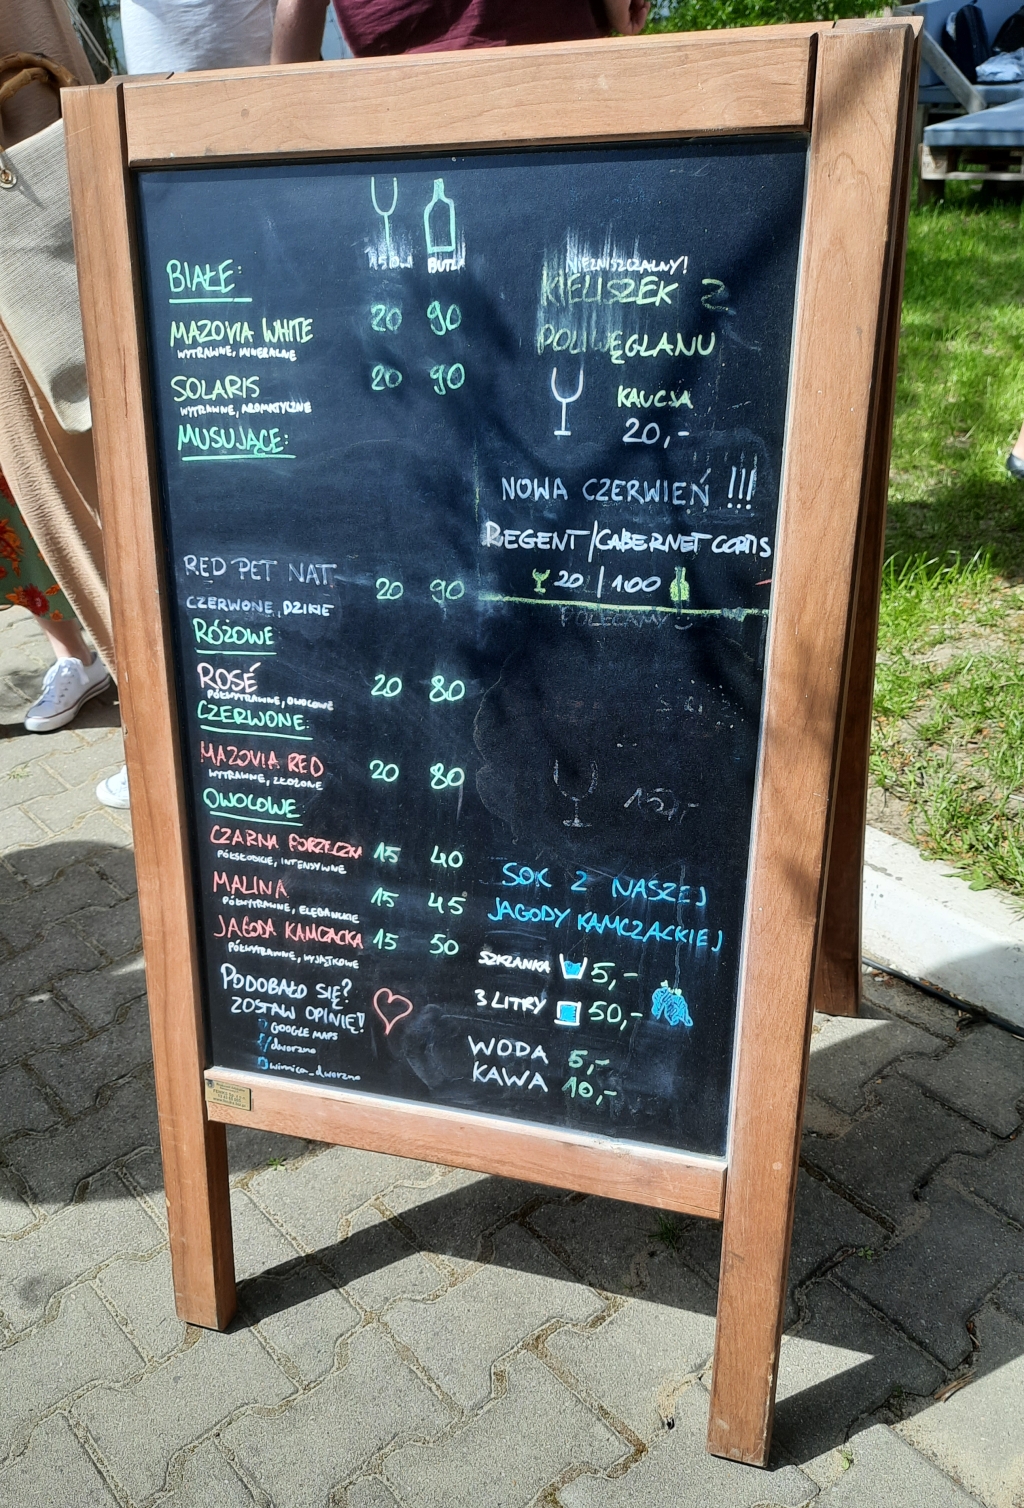 BUTLA
BIAŁE:
MAZOVIA WHITE 20 90
WYTRAWNE, MINERALNE
SOLARIS 20 90
WYTRAWNE, AROMATYCZNE
MUSUJĄCE:
RED PET NAT 20 90
CZERWONE, DZIKIE
RÓŻOWE
ROSÉ 20 80
PÓŁWYTRAWNE, OWOCOWE
CZERWONE:
MAZOVIA RED 20 80
WYTRAWNE, ZŁOŻONE
OWOCOWE
CZARNA PORZECZKA 15 40
PÓŁSŁODKIE, INTENSYWNE
MALINA 15 45
PÓŁWYTRAWNE, ELEGANCKIE
JAGODA KAMCZACKA 15 50
PÓŁWYTRAWNE, WYJĄTKOWE
PODOBAŁO SIĘ?
ZOSTAW OPINIĘ!
GOOGLE MAPS
/dworzno
winnica_dworzno
NIEZNISZCZALNY!
KIELISZEK Z
POLIWĘGLANU
KAUCJA
20,-
NOWA CZERWIEŃ !!!
REGENT/CABERNET CORTIS
20 / 100
POLECAMY
SOK Z NASZEJ
JAGODY KAMCZACKIEJ
SZKLANKA 5,-
3 LITRY 50,-
WODA 5,-
KAWA 10,-